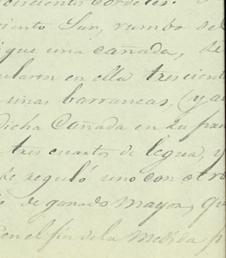 cincuenta cordeles.
viento Sur, rumbo del
que una cañada, se
cularon en ella trescient
unas barrancas, (y a
dicha Cañada en su par
tres cuartos de legua, y
se reguló uno con otro
de ganado mayor, qu
en el fin de la Medida p